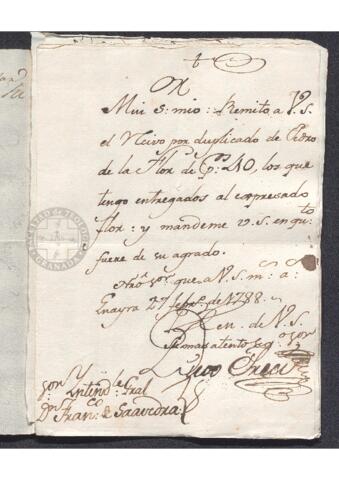 Mui S.r mio: Remito a V.S.
el Recivo por duplicado de Pedro
de la Flor de P.s 240, los que
tengo entregados al expresado
flor: y mandeme V.S. en q.to
fuere de su agrado.
Ntro S.or gue a V.S. m.s a.s
27 de 1788.
de V.S.
su mas atento seg.o
S.or Yntend.te Gral
D.n Fran.co de Saavedra